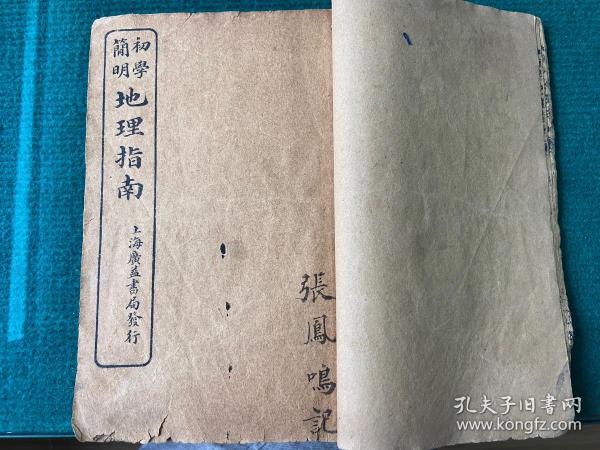 初學
簡明
地理指南
上海廣益書局發行
張鳳鳴記
孔夫子旧书网
www.kongfz.com